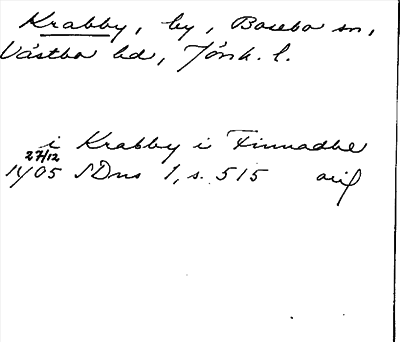 Krabby, by, Bosebo sn,
Västbo hd, Jönk. l.
i Krabby i Finnadhe
27/12
1405 SDns 1, s. 515 orig